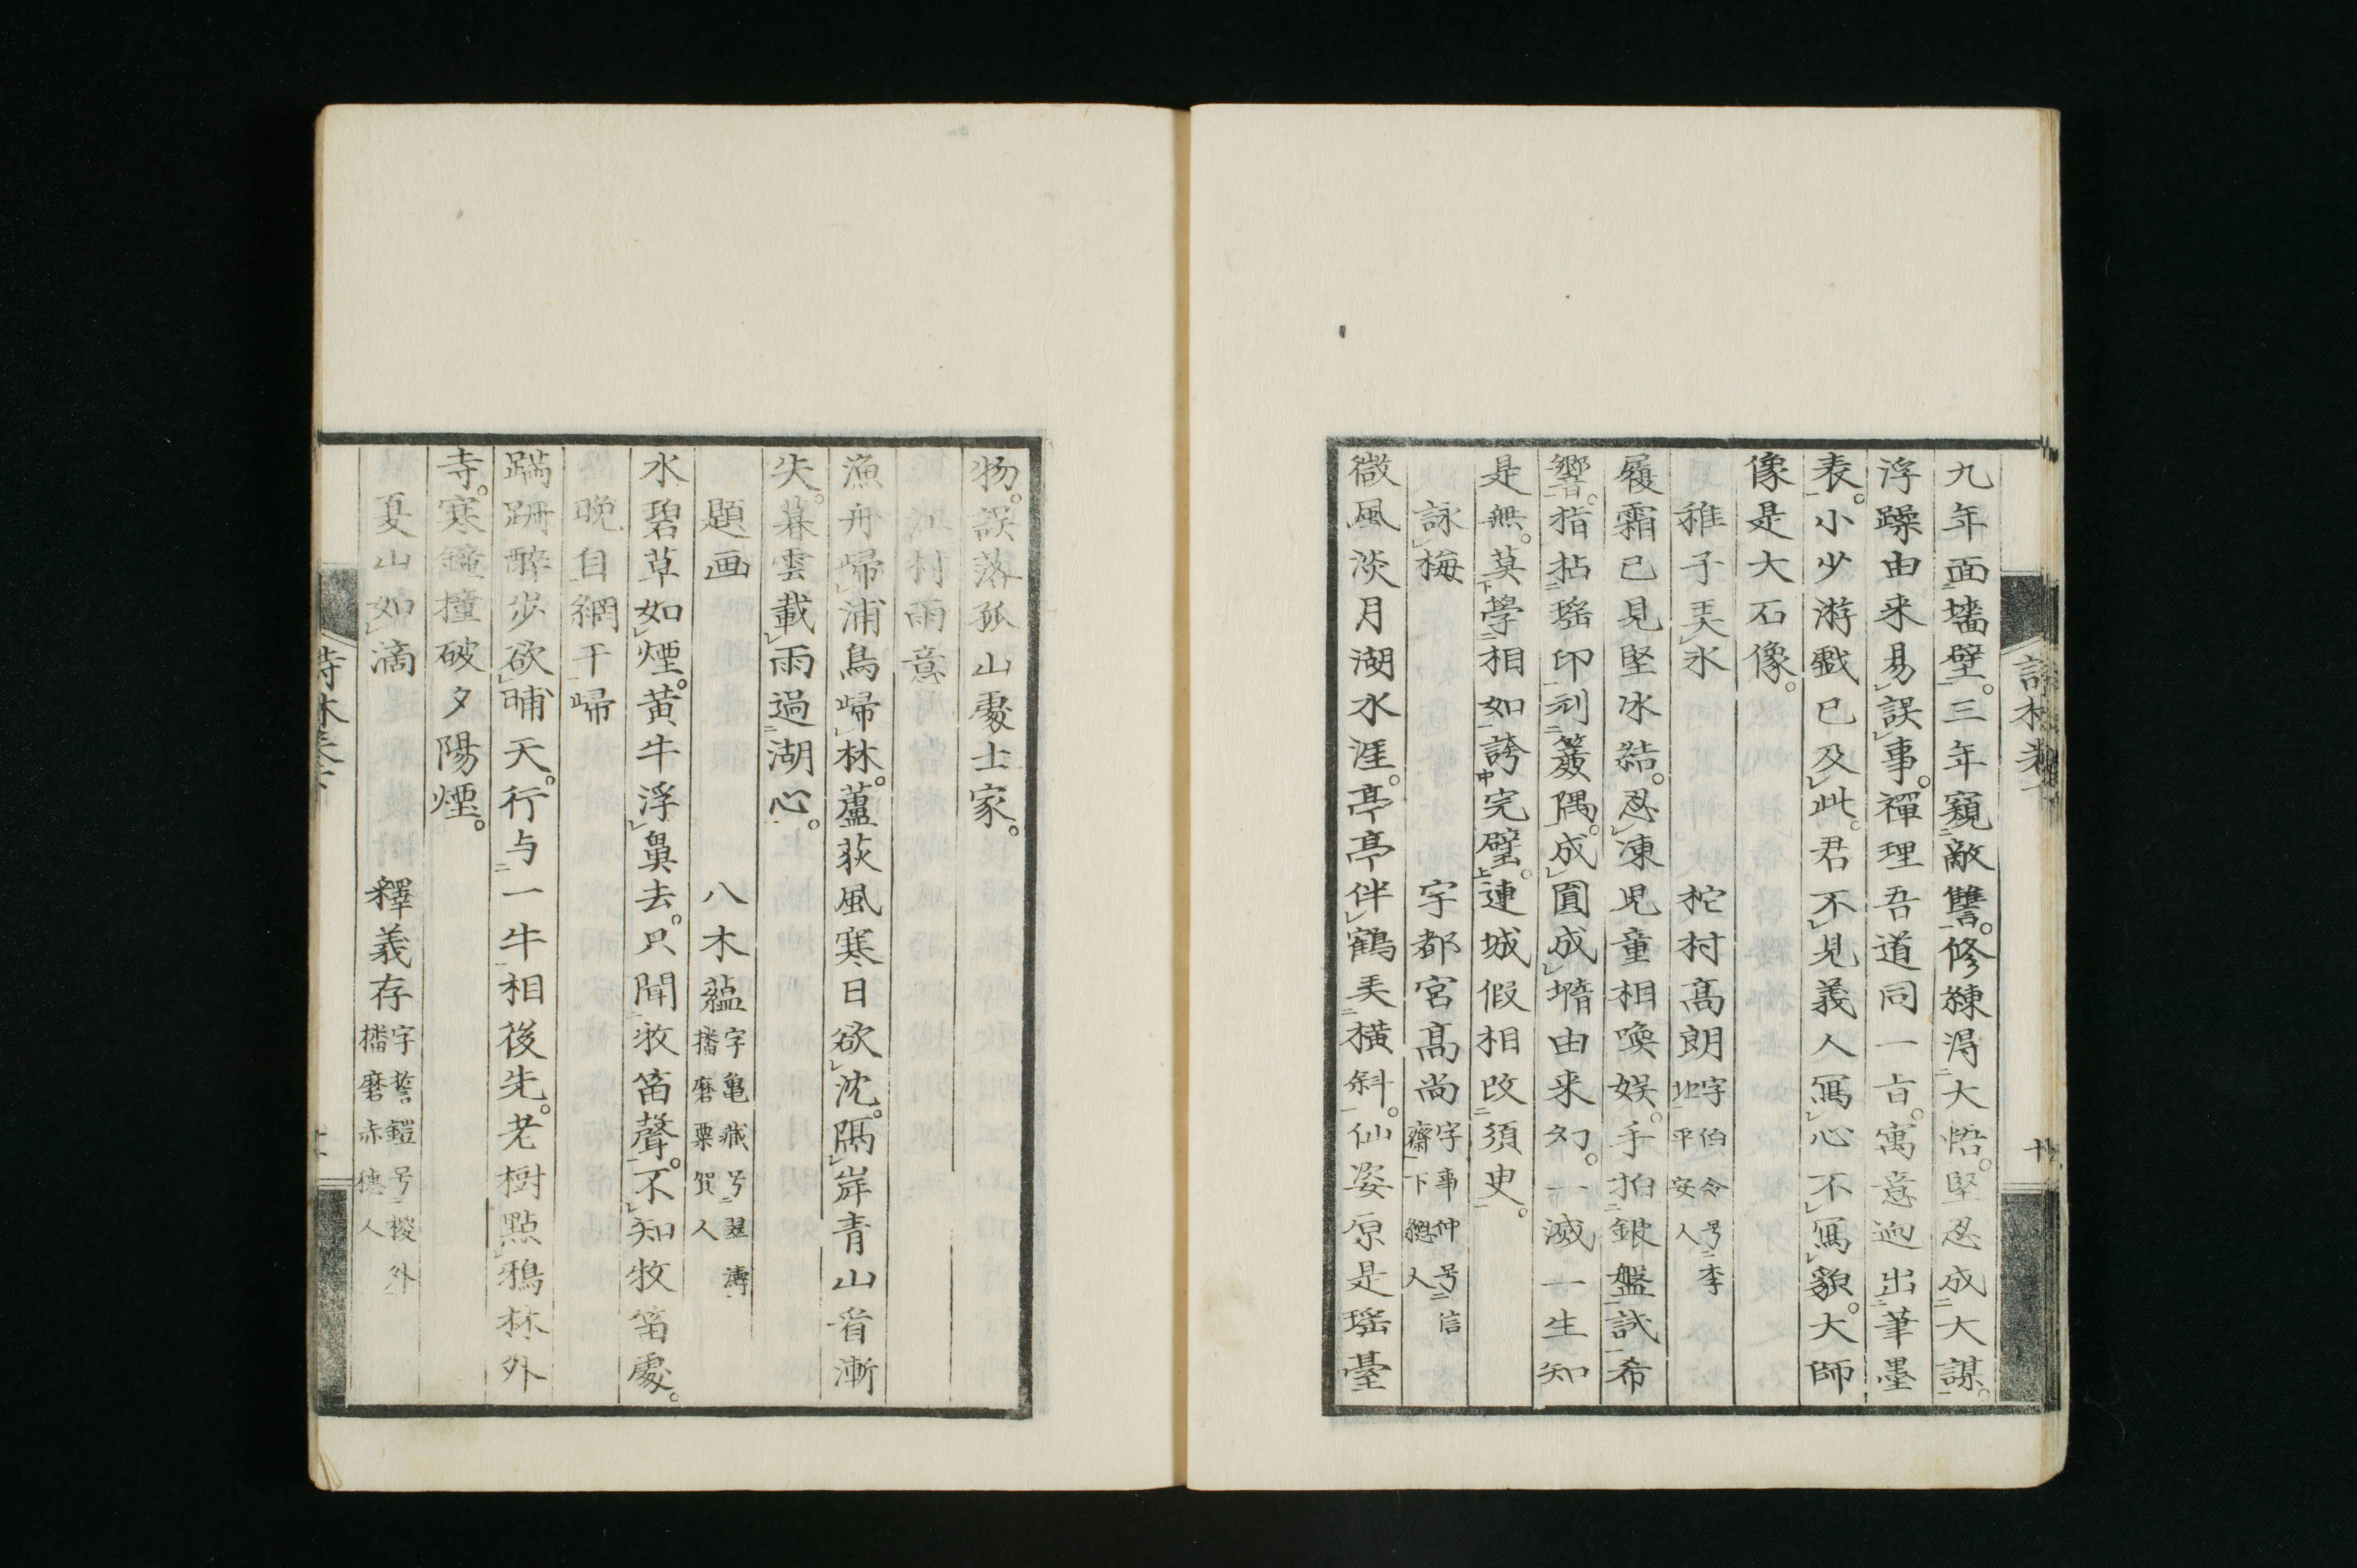 九年面墻壁。三年窺敵讐。修練得大悟。堅忍成大謀。
浮躁由来易誤事。禪理吾道同一㫖。寓意迥出筆墨
表。小少游戯已及此。君不見義人寫心不寫貌。大師
像是大石像。
稚子弄氷　　柁村髙朗 字伯令号李 平安人
履霜已見堅冰結。忍凍児童相喚娯。手拍銀盤試希
響。指拈瑶印刓簽隅。成圓成墮由来幻。一滅一生知
是無。莫學相如誇完璧。連城假相改須臾。
詠梅　　宇都宮髙尚 字事仲号信齋下總人
微風淡月湖水涯。亭亭伴鶴弄橫斜。仙姿原是瑶臺
物。誤落孤山處士家。
江村雨意
漁舟歸浦鳥歸林。蘆荻風寒日欲沈。隔岸青山看漸
失。暮雲載雨過湖心。
題画　　八木蘊 字亀蔵号翠濤播磨粟賀人
水碧草如煙。黄牛浮鼻去。只聞牧笛聲。不知牧笛處。
晩自網干歸
蹣跚酔歩欲晡天。行与一牛相後先。老樹點鴉林外
寺。寒鐘撞破夕陽煙。
夏山如滴　　釋義存 字誓鎧号棱外播磨赤穂人
詩林巻下